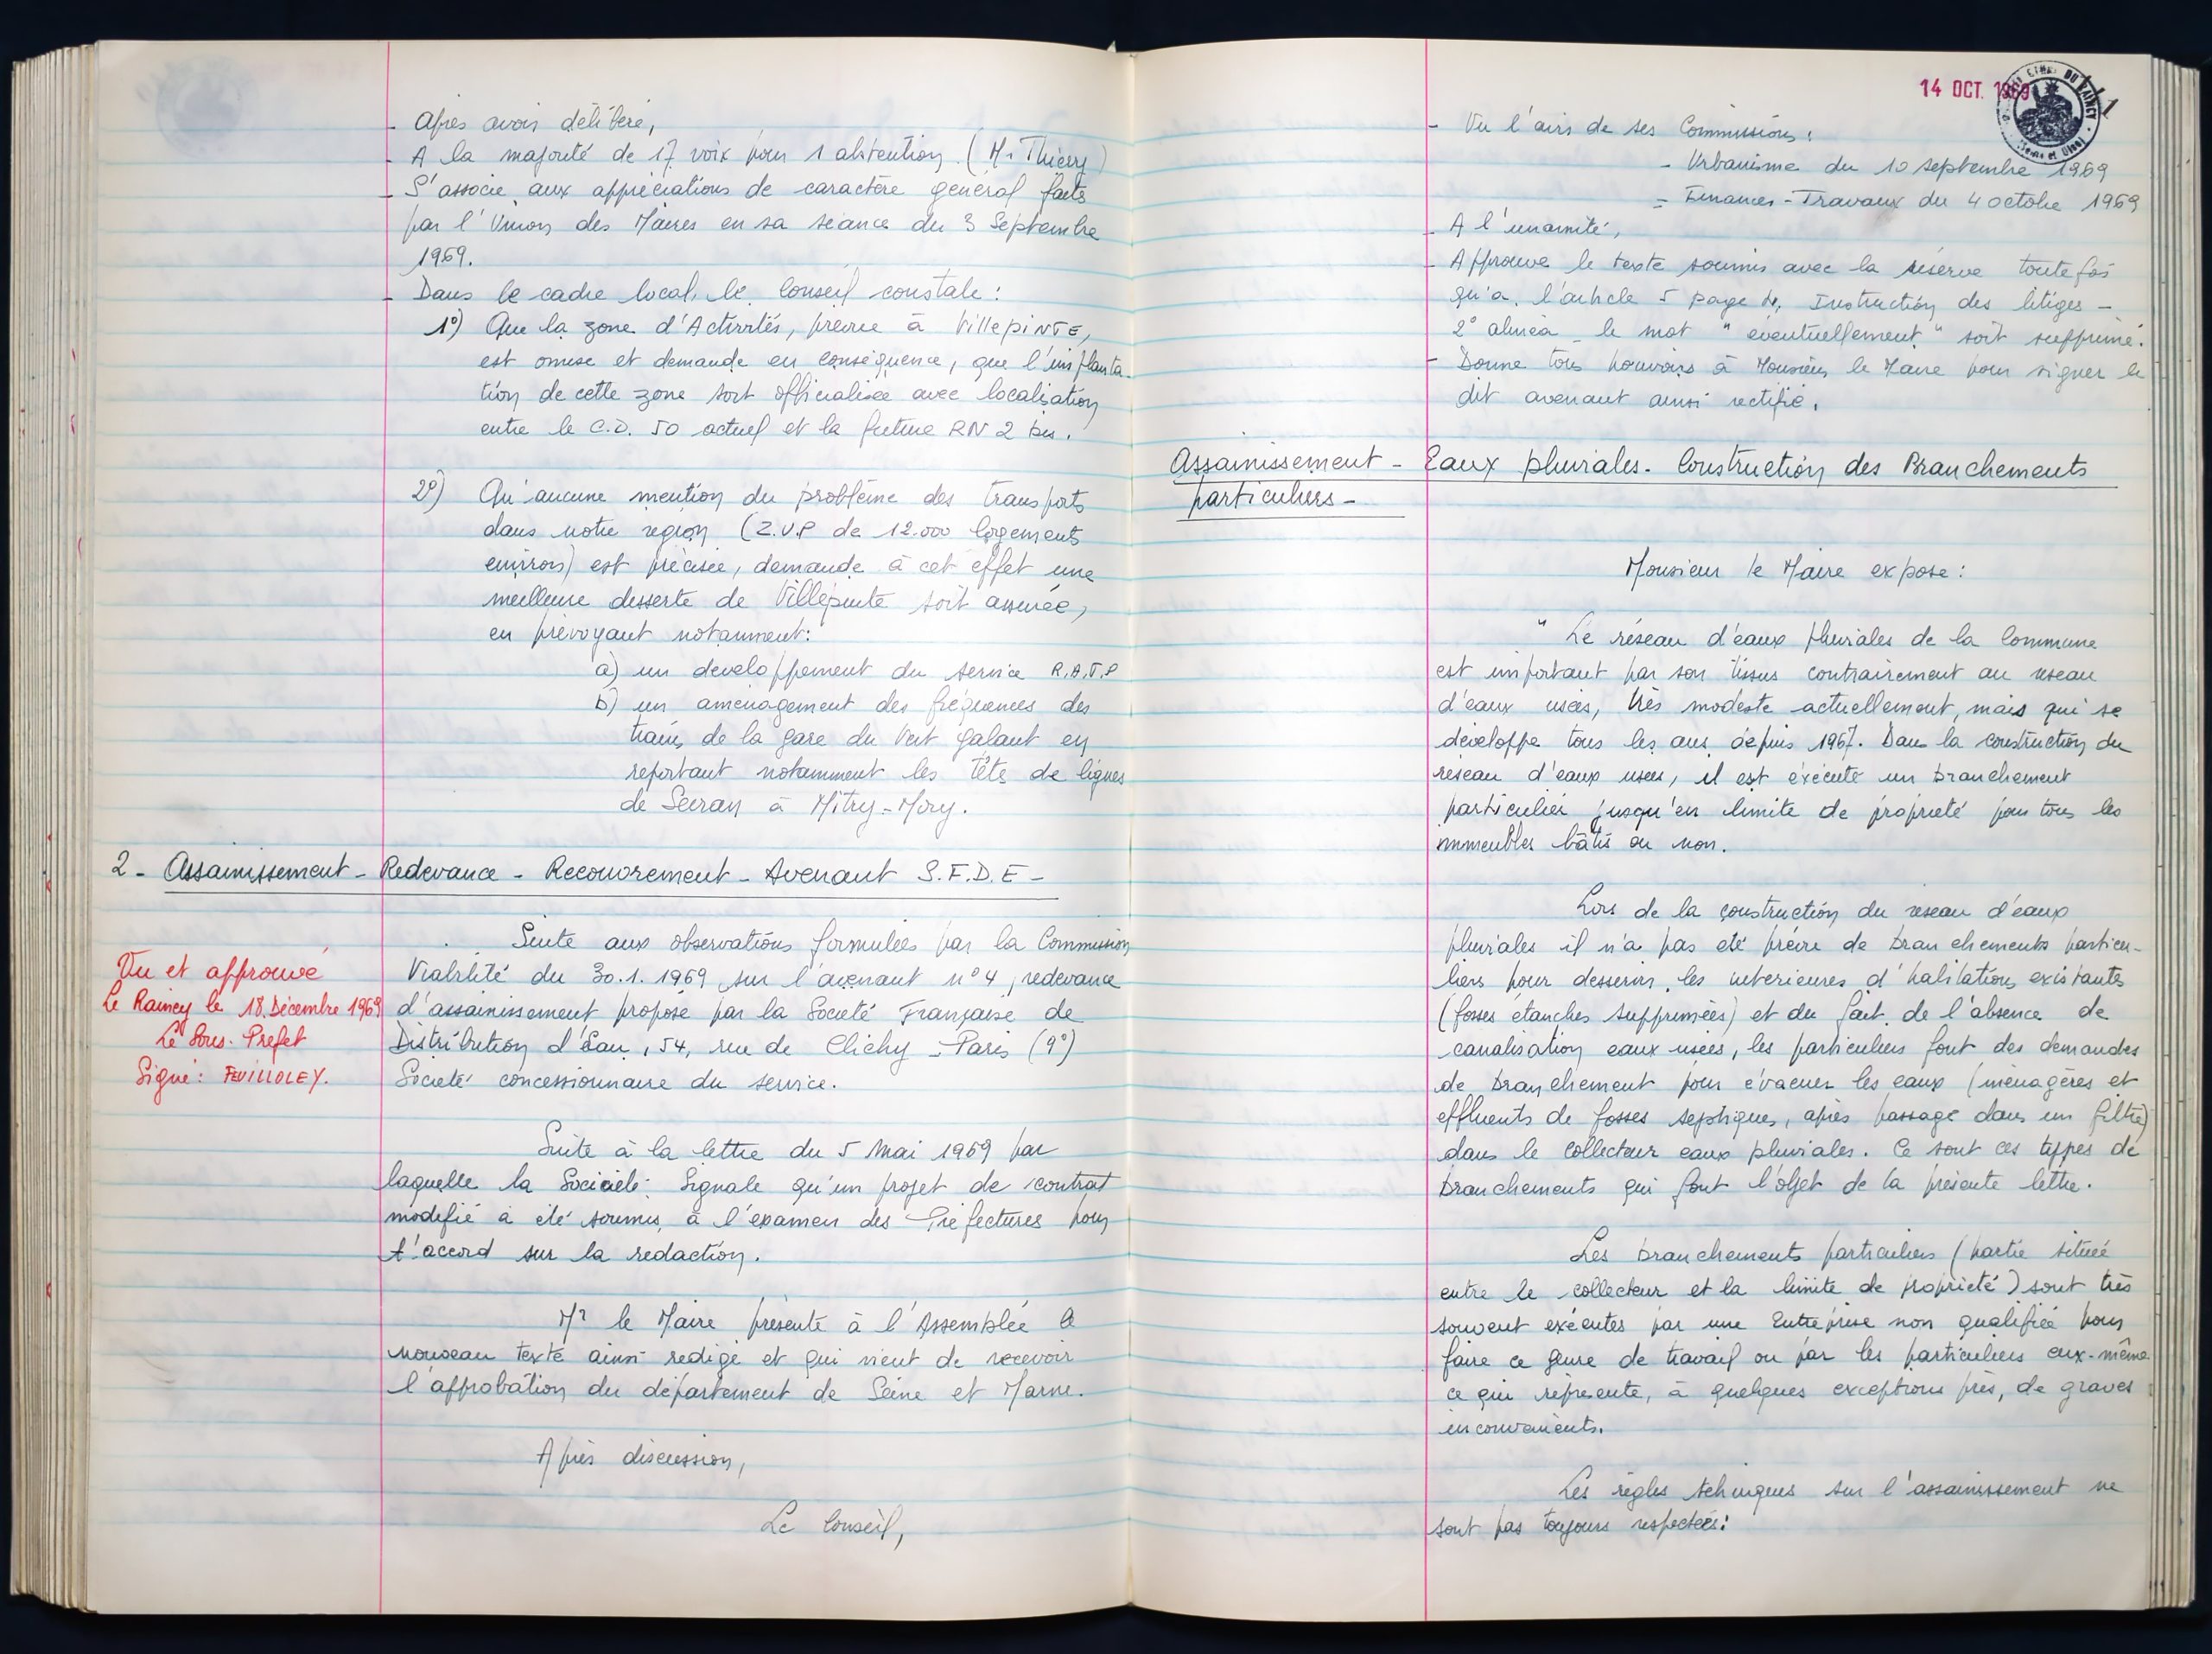 - Après avoir délibéré,
- A la majorité de 17 voix pour 1 abstention. (M. Thierry)
- S'associe aux appréciations de caractère général faites
par l'Union des Maires en sa séance du 3 Septembre
1969.
- Dans le cadre local, le Conseil constate :
1°) Que la zone d'Activités, prévue à VillepiNTE,
est omise et demande en conséquence, que l'implanta-
tion de cette zone soit officialisée avec localisation
entre le C.D. 50 actuel et la future RN 2 bis.
2°) Qu'aucune mention du problème des transports
dans notre région (Z.U.P de 12.000 logements
environ) est précisée, demande à cet effet une
meilleure desserte de Villepinte soit assurée,
en prévoyant notamment :
a) un developpement du service R.A.T.P
b) un aménagement des fréquences des
trains de la gare du Vert Galant en
reportant notamment les têtes de lignes
de Sevran à Mitry-Mory.
2 - Assainissement - Redevance - Recouvrement - Avenant S.F.D.E -
Suite aux observations formulées par la Commission
Viabilité du 30.1.1969 sur l'avenant n° 4, redevance
d'assainissement proposé par la Société Française de
Distribution d'Eau, 54, rue de Clichy - Paris (9°)
Société concessionnaire du service.
Vu et approuvé
Le Raincy le 18 Décembre 1969
Le Sous-Prefet
Signé : FEUILLOLEY.
Suite à la lettre du 5 Mai 1969 par
laquelle la Société Signale qu'un projet de contrat
modifié a été soumis à l'examen des Préfectures pour
l'accord sur la redaction.
Mr le Maire présente à l'Assemblée le
nouveau texte ainsi redigé et qui vient de recevoir
l'approbation du département de Seine et Marne.
Après discussion,
Le Conseil,
14 OCT. 1969
- Vu l'avis de ses Commissions :
- Urbanisme du 10 septembre 1969
- Finances - Travaux du 4 octobre 1969
- A l'unamité,
- Approuve le texte soumis avec la réserve toutefois
qu'a l'article 5 page Instruction des litiges -
2° alinéa le mot "eventuellement" soit supprimé.
- Donne tous pouvoirs à Monsieur le Maire pour signer le
dit avenant ainsi rectifié.
Assainissement - Eaux pluviales - Construction des Branchements
particuliers -
Monsieur le Maire expose :
" Le réseau d'eaux pluviales de la Commune
est important par son tissus contrairement au reseau
d'eaux usées, très modeste actuellement, mais qui se
développe tous les ans depuis 1967. Dans la construction du
réseau d'eaux usées, il est éxécuté un branchement
particulier jusqu'en limite de propriété pour tous les
immeubles bâtis ou non.
Lors de la construction du reseau d'eaux
pluviales il n'a pas été prévu de branchements particu-
liers pour desservir les interieures d'habitations existantes
(fosses étanches supprimées) et du fait de l'absence de
canalisation eaux usées, les particuliers font des demandes
de branchement pour évacuer les eaux (ménagères et
effluents de fosses septiques, après passage dans un filtre)
dans le collecteur eaux pluviales. Ce sont ces types de
branchements qui font l'objet de la présente lettre.
Les branchements particuliers (partie située
entre le collecteur et la limite de propriété) sont très
souvent exécutés par une Entreprise non qualifiée pour
faire ce genre de travail ou par les particuliers eux-même
ce qui réprésente, à quelques exceptions près, de graves
inconvénients.
Les règles tehniques sur l'assainissement ne
sont pas toujours respectées :